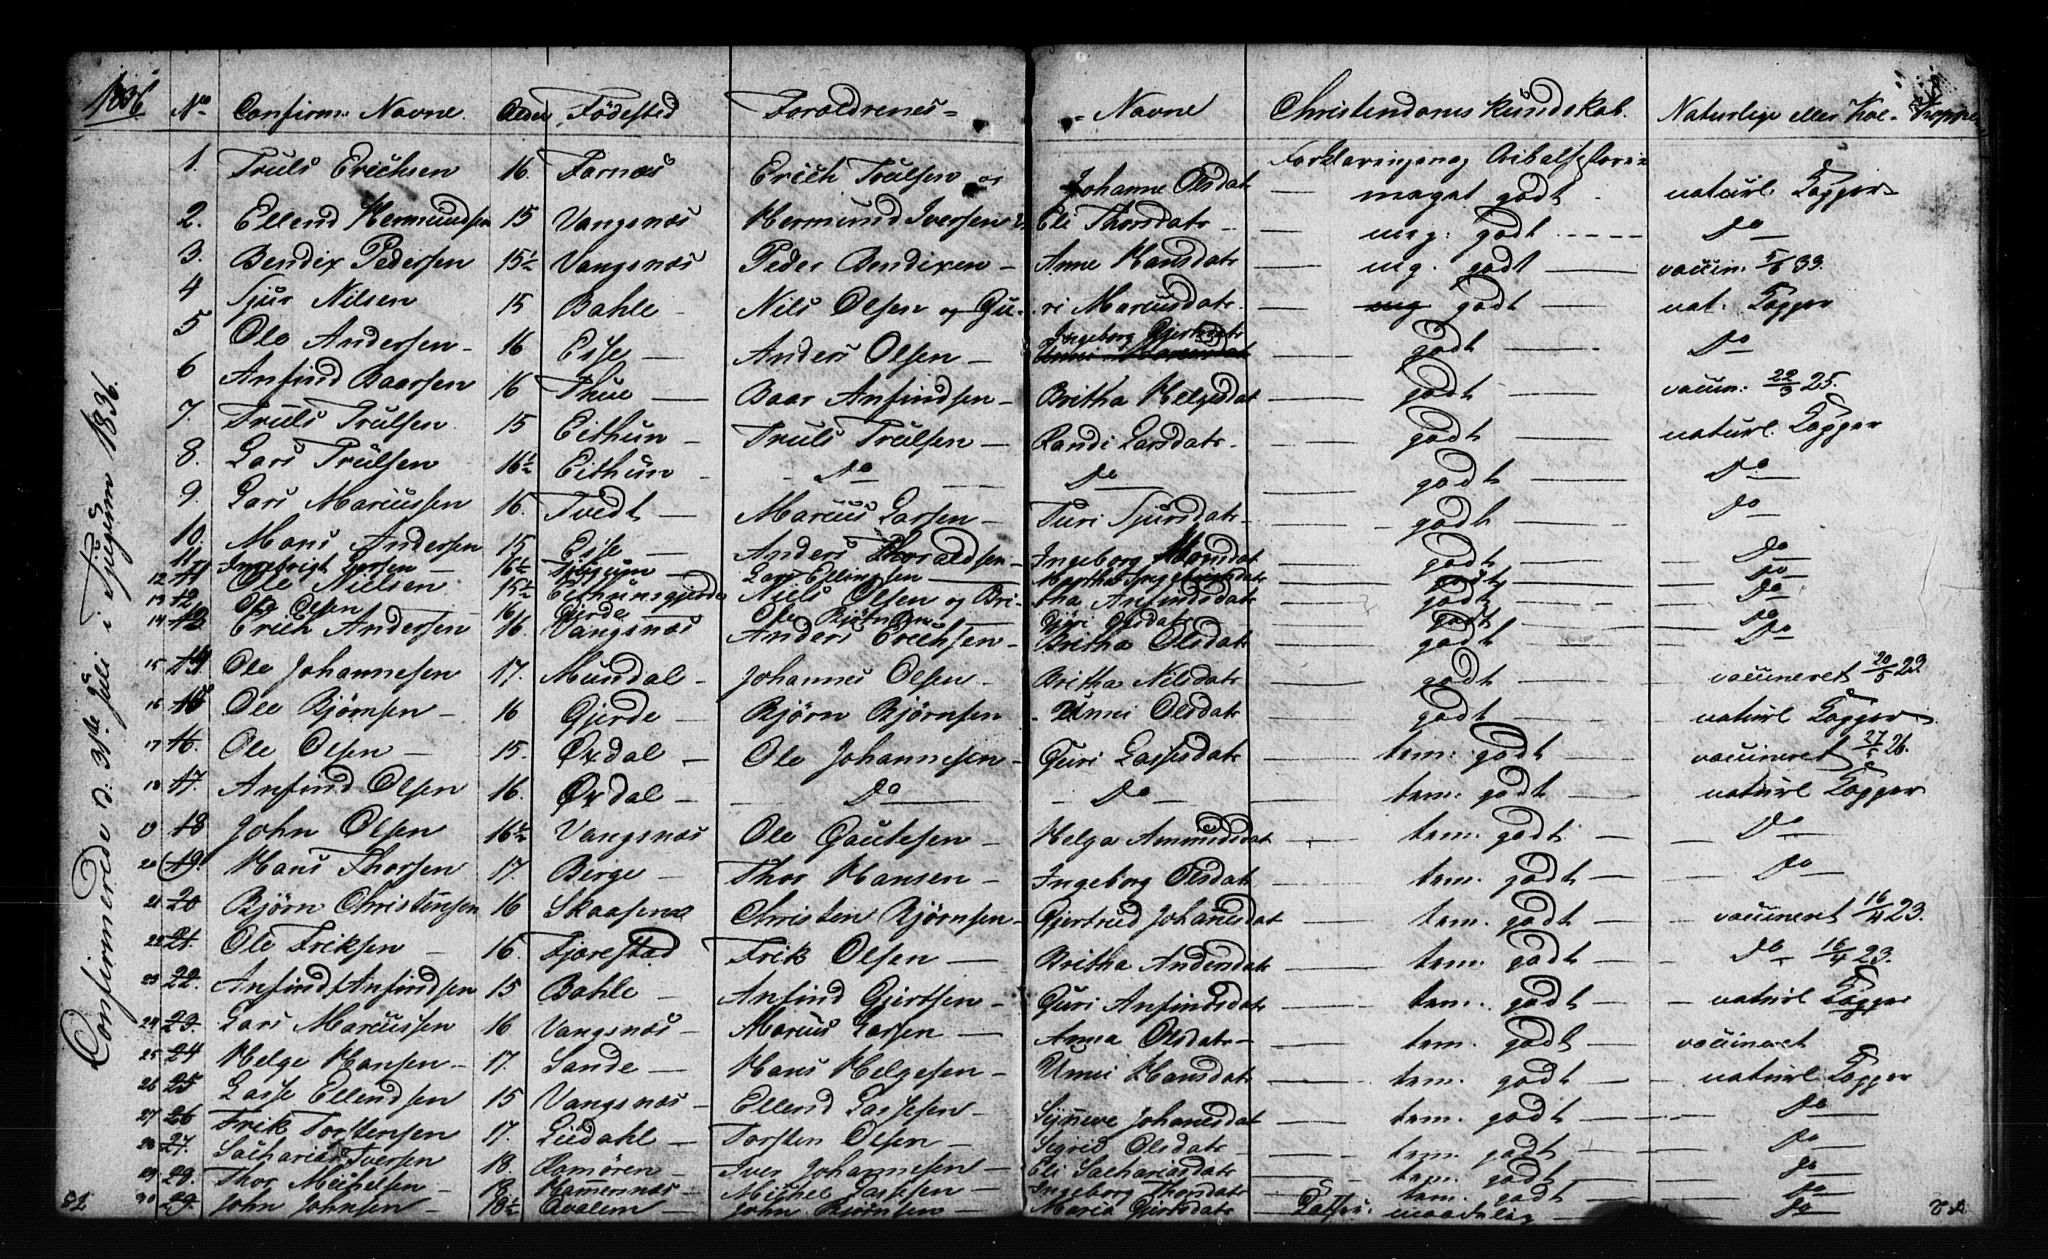 1836
No Confirm: Navne. Alder Födested Foroldrenes= =Navne Christendoms Kundskab. Naturlige eller Koe- Kopper
1. Truls Erichsen 16. Fornæs Erich Trulsen og Johanne Olsdatr — meget godt naturl. Kopper
2. Ellend Hermundsen 15 Vangsnæs Hermund Iversen Eli Thorsdatr — meg: godt Do
3. Bendix Pedersen 15½ Vangsnæs Peder Bendixen — Anne Hansdatr — mg. godt — vaccin. 5/6 33.
4 Sjur Nilsen 15 Bahle — Nils Olsen og Gu-ri Marcusdatr — mg godt — nat. Kopper
5 Ole Andersen — 16 Esse — Anders Olsen — Ingeborg Gjertsdatr godt — Do
6 Anfind Baarsen 16 Thue — Baar Anfindsen — Britha Helgesdat godt — vaccin: 22/3 25.
7. Truls Trulsen 15 Eithun — Truls Trulsen — Randi Larsdatr — godt — naturl. Kopper
8. Lars Trulsen 16½ Eithun — Do Do godt — Do
9. Lars Marcussen 16. Tvedt — Marcus Larsen — Turi Sjursdatr — godt — Do
10. Mons Andersen 15 Esse — Anders Thoraldsen — Ingeborg Monsdat — godt — Do
11. Ingebrigt Larsen 16½ Larsen Ellingsen — Martha godt — Do
12 11 Ole Nielsen 15½ Eithunsgjerde Niels Olsen og Bri-tha Anfindsdatr godt — Do
13 12 Ole Olsen 16 Gjerde Ole Björnsen — Olsdatr godt — Do
14 13 Erich Andersen 16. Vangsnæs Anders Erichsen — Britha Olsdatr godt — Do
15 14 Ole Johannesen 17. Mundal — Johannes Olsen — Britha Nilsdatr godt — vaccineret 20/5 23
16 15 Ole Björnsen — 16 Gjerde — Björn Björnsen Unni Olsdatr godt — naturl Kopper
17 16. Ole Olsen — 15. Øxdal — Ole Johannesen — Guri Lassesdatr — tem: godt — vaccineret 27/5 26.
18 17. Anfind Olsen 16. Øxdal — Do — Do — tem. godt — naturl Kopper
19 18 John Olsen 16½ Vangsnæs Ole Gautesen — Helga Ammundsdat — tem. godt — Do
20 19. Hans Thorsen 17 Berge — Thor Hansen — Ingeborg Olsdatr — tem. godt — Do
21 20 Björn Christensen 16 Skaasenæ Christen Björnsen — Gjertrud Johannesdat — tem. godt — vaccineret 16/4 23.
22 21. Ole Friksen — 16. Fjærestad Frik Olsen — Britha Andersdatr — tem. godt — Do 16/4 23.
23 22. Anfind Anfindsen 15 Bahle — Anfind Gjertsen — Guri Anfindsdatr — tem. godt — naturl Kopper
24 23. Lars Marcussen 16 Vangsnæs — Marcus Larsen — Anna Olsdatr — tem. godt — vaccineret
25 24 Helge Hansen — 17. Sande — Hans Helgesen — Unni Hansdatr — tem. godt — naturl. Kopper
26 25 Lasse Ellendsen 15 Vangsnæs — Ellend Lassesen — Synneve Johanesdat — tem. godt — Do
27 26 Frik Torstensen 17. Liedahl — Torsten Olsen — Sigrid Olsdatr — tem. godt — Do
28 27. Sacharias Iversen 18. Romören — Iver Johannesen — Eli Sachariasdatr — tem. godt — Do
29 28. Thor Michelsen — 18. Hamernæs — Michel Lassesen — Ingeborg Thorsdatr — tem. godt — Do
30 29. John Johnsen 18½ Qvalem — John Björnsen — Maria Gjertsdatr — maadelig — Do
Confirmerede d. 31te Juli i Tjugum 1836.